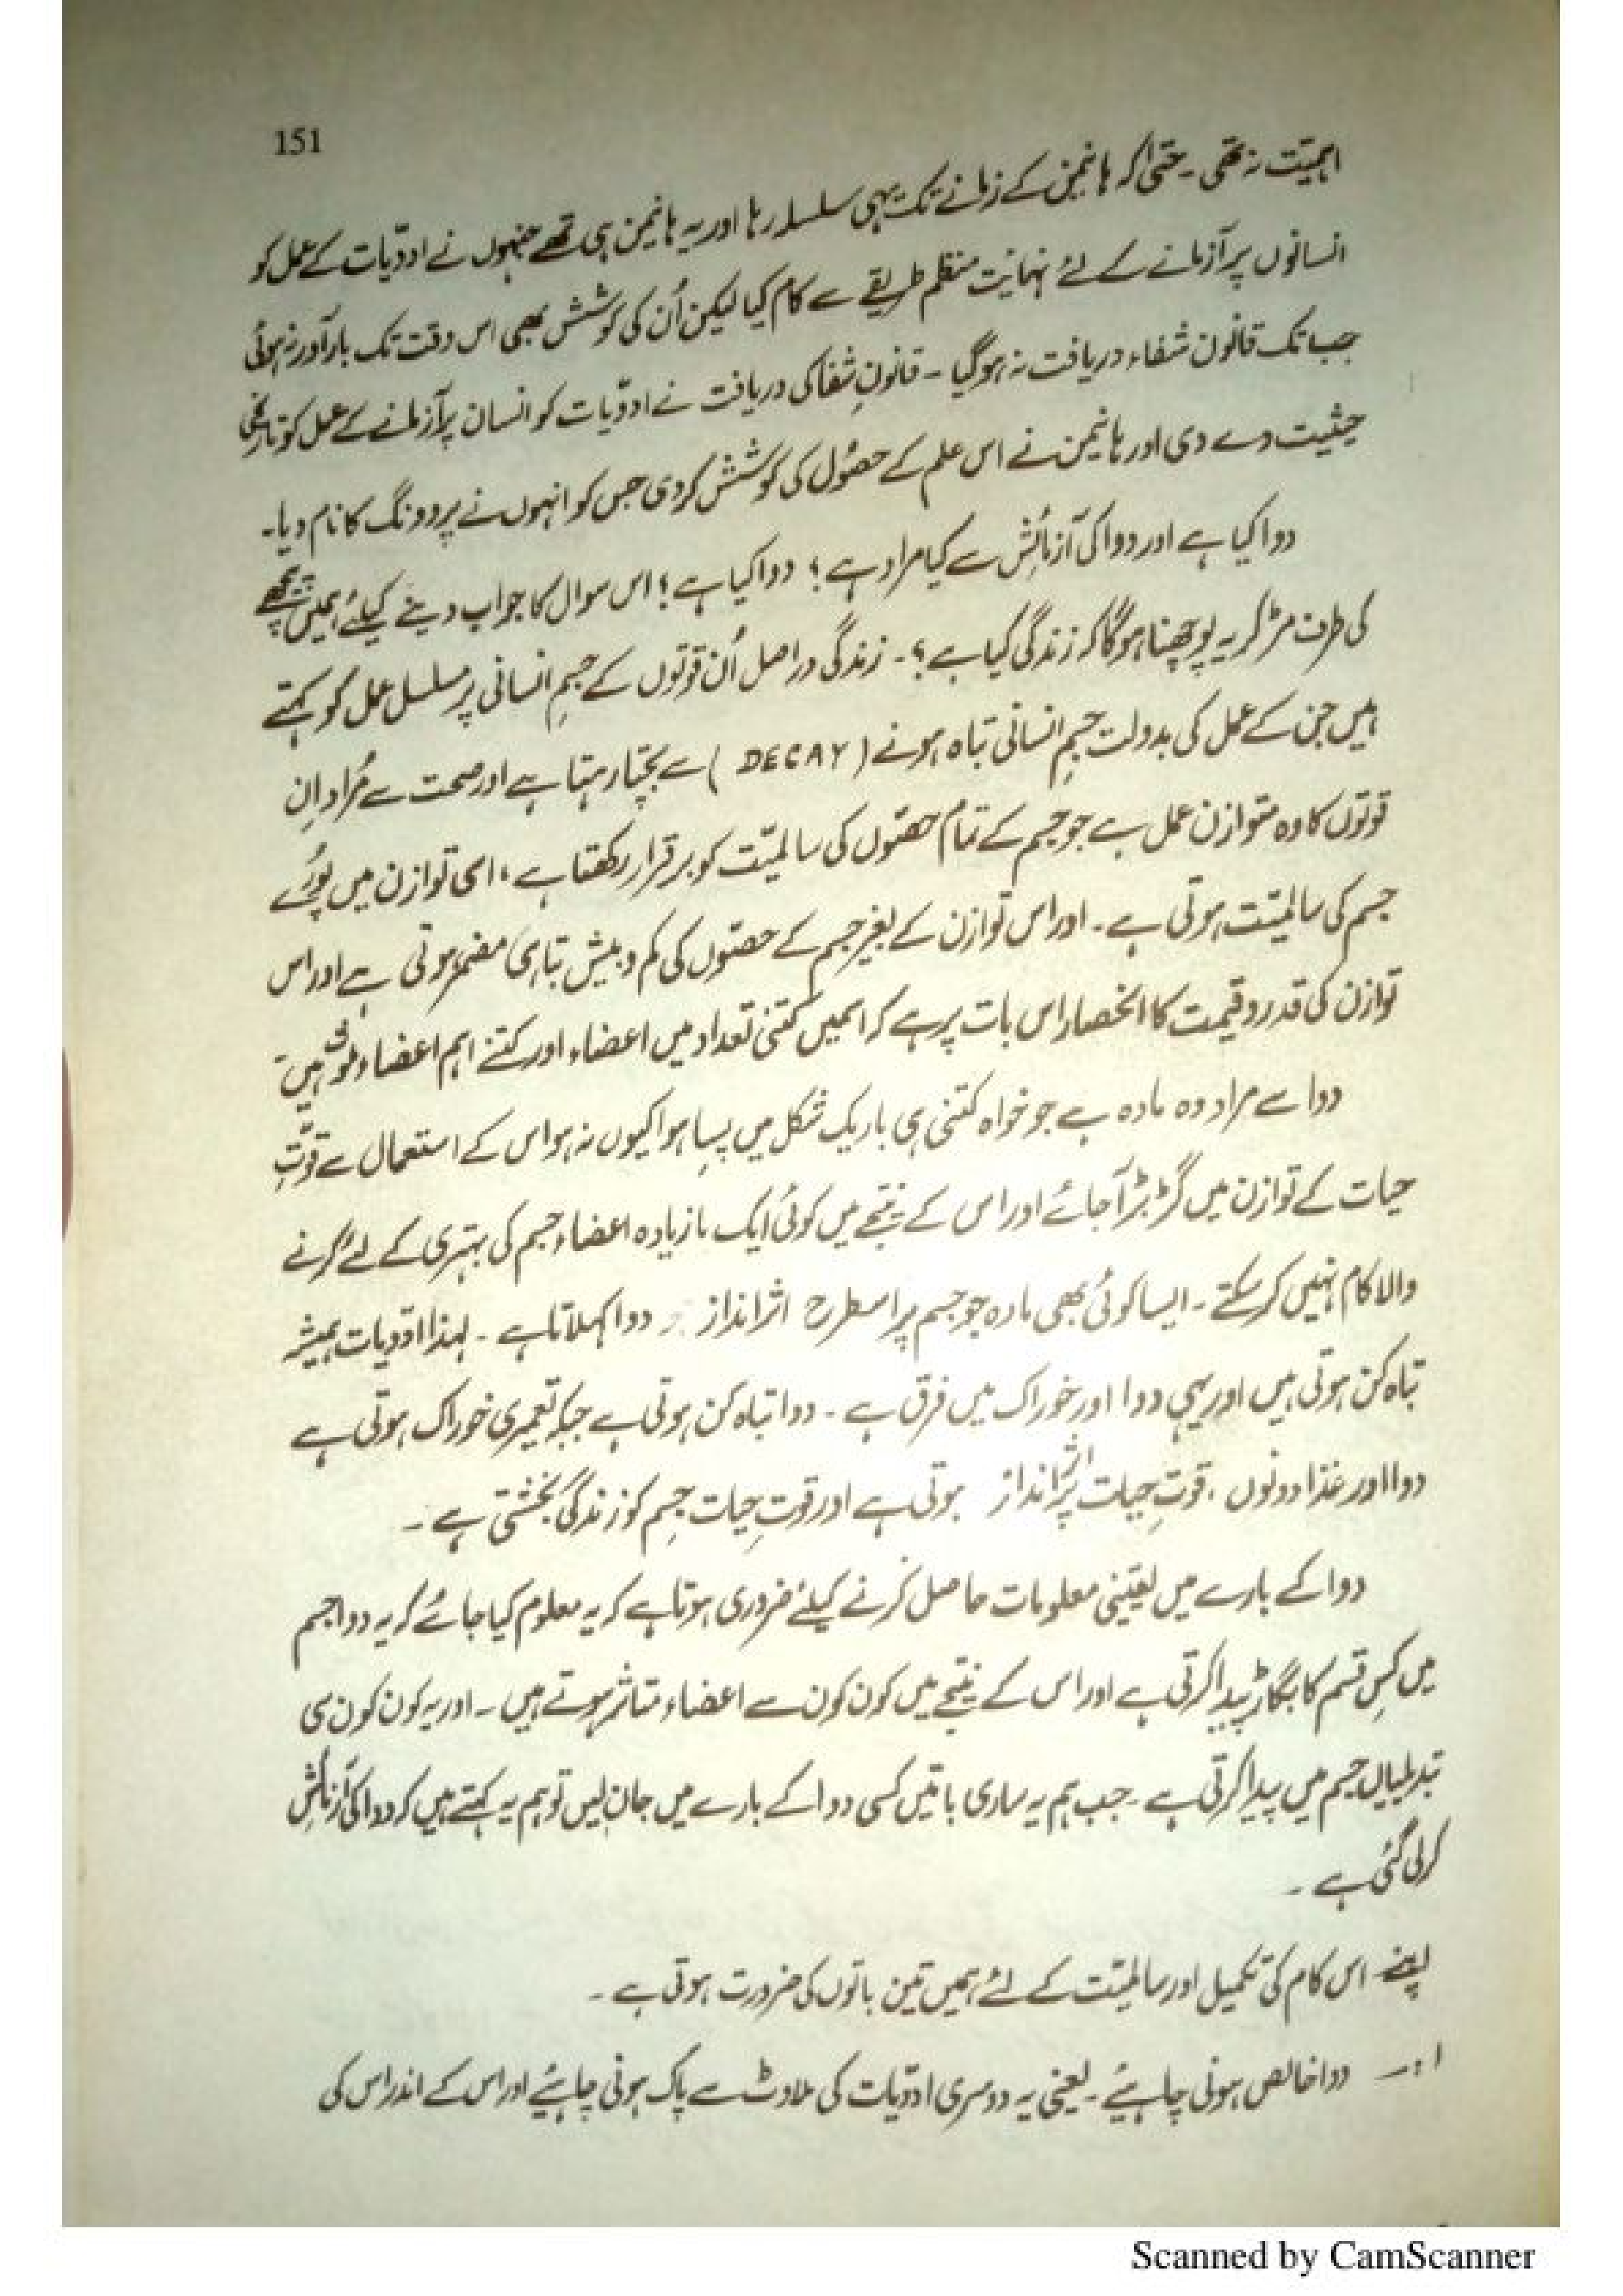 151
اہمیّت نہ تھی ۔ حتیٰ کہ ہانیمن کے زمانے تک یہی سلسلہ رہا اور یہ ہانیمن ہی تھے جنہوں نے ادویّات کے عمل کو
انسانوں پر آزمانے کے لئے نہایت منظم طریقے سے کام کیا لیکن اُن کی کوشش بھی اس وقت تک بار آور نہ ہوئی
جب تک قانون شفاء دریافت نہ ہو گیا ۔ قانونِ شفا کی دریافت نے ادویّات کو انسان پر آزمانے کے عمل کو تاریخی
حیثیت دے دی اور ہانیمن نے اس علم کے حصُول کی کوشش کر دی جس کو انہوں نے پرووِنگ کا نام دیا۔
دوا کیا ہے اور دوا کی آزمائش سے کیا مراد ہے ؟ دوا کیا ہے ؟ اس سوال کا جواب دینے کیلئے ہمیں پیچھے
کی طرف مڑ کر یہ پوچھنا ہو گا کہ زندگی کیا ہے ؟۔ زندگی دراصل اُن قوّتوں کے جسمِ انسانی پر مسلسل عمل کو کہتے
ہیں جن کے عمل کی بدولت جسمِ انسانی تباہ ہونے ( DECAY ) سے بچتا رہتا ہے اور صحت سے مُراد اِن
قوّتوں کا وہ متوازن عمل ہے جو جسم کے تمام حصّوں کی سالمیّت کو برقرار رکھتا ہے ، اسی توازن میں پُورے
جسم کی سالمیّت ہوتی ہے ۔ اور اس توازن کے بغیر جسم کے حصّوں کی کم و بیش تباہی مضمر ہوتی ہے اور اس
توازن کی قدر و قیمت کا انحصار اس بات پر ہے کہ اسمیں کتنی تعداد میں اعضاء اور کتنے اہم اعضاء ملوّث ہیں ۔
دوا سے مراد وہ مادہ ہے جو خواہ کتنی ہی باریک شکل میں پِسا ہوا کیوں نہ ہو اس کے استعمال سے قوّتِ
حیات کے توازن میں گڑبڑ آ جائے اور اس کے نتیجے میں کوئی ایک یا زیادہ اعضاء جسم کی بہتری کے لئے کرنے
والا کام نہیں کر سکتے ۔ ایسا کوئی بھی مادہ جو جسم پر اسطرح اثر انداز دوا کہلاتا ہے ۔ لہذا ادویات ہمیشہ
تباہ کن ہوتی ہیں اور یہی دوا اور خوراک میں فرق ہے ۔ دوا تباہ کن ہوتی ہے جبکہ تعمیری خوراک ہوتی ہے
دوا اور غذا دونوں ، قوتِ حیات پر اثر انداز ہوتی ہے اور قوتِ حیات جسم کو زندگی بخشتی ہے ۔
دوا کے بارے میں یقینی معلومات حاصل کرنے کیلئے ضروری ہوتا ہے کہ یہ معلوم کیا جائے کہ یہ دوا جسم
میں کِس قسم کا بگاڑ پیدا کرتی ہے اور اس کے نتیجے میں کون کون سے اعضاء متاثر ہوتے ہیں ۔ اور یہ کون کون سی
تبدیلیاں جسم میں پیدا کرتی ہے ۔ جب ہم یہ ساری باتیں کسی دوا کے بارے میں جان لیں تو ہم یہ کہتے ہیں کہ دوا کی آزمائش
کر لی گئی ہے ۔
اپنے اس کام کی تکمیل اور سالمیّت کے لئے ہمیں تین باتوں کی ضرورت ہوتی ہے ۔
۱ :۔ دوا خالص ہونی چاہیئے ۔ یعنی یہ دوسری ادویّات کی ملاوٹ سے پاک ہونی چاہیئے اور اس کے اندر اس کی
Scanned by CamScanner